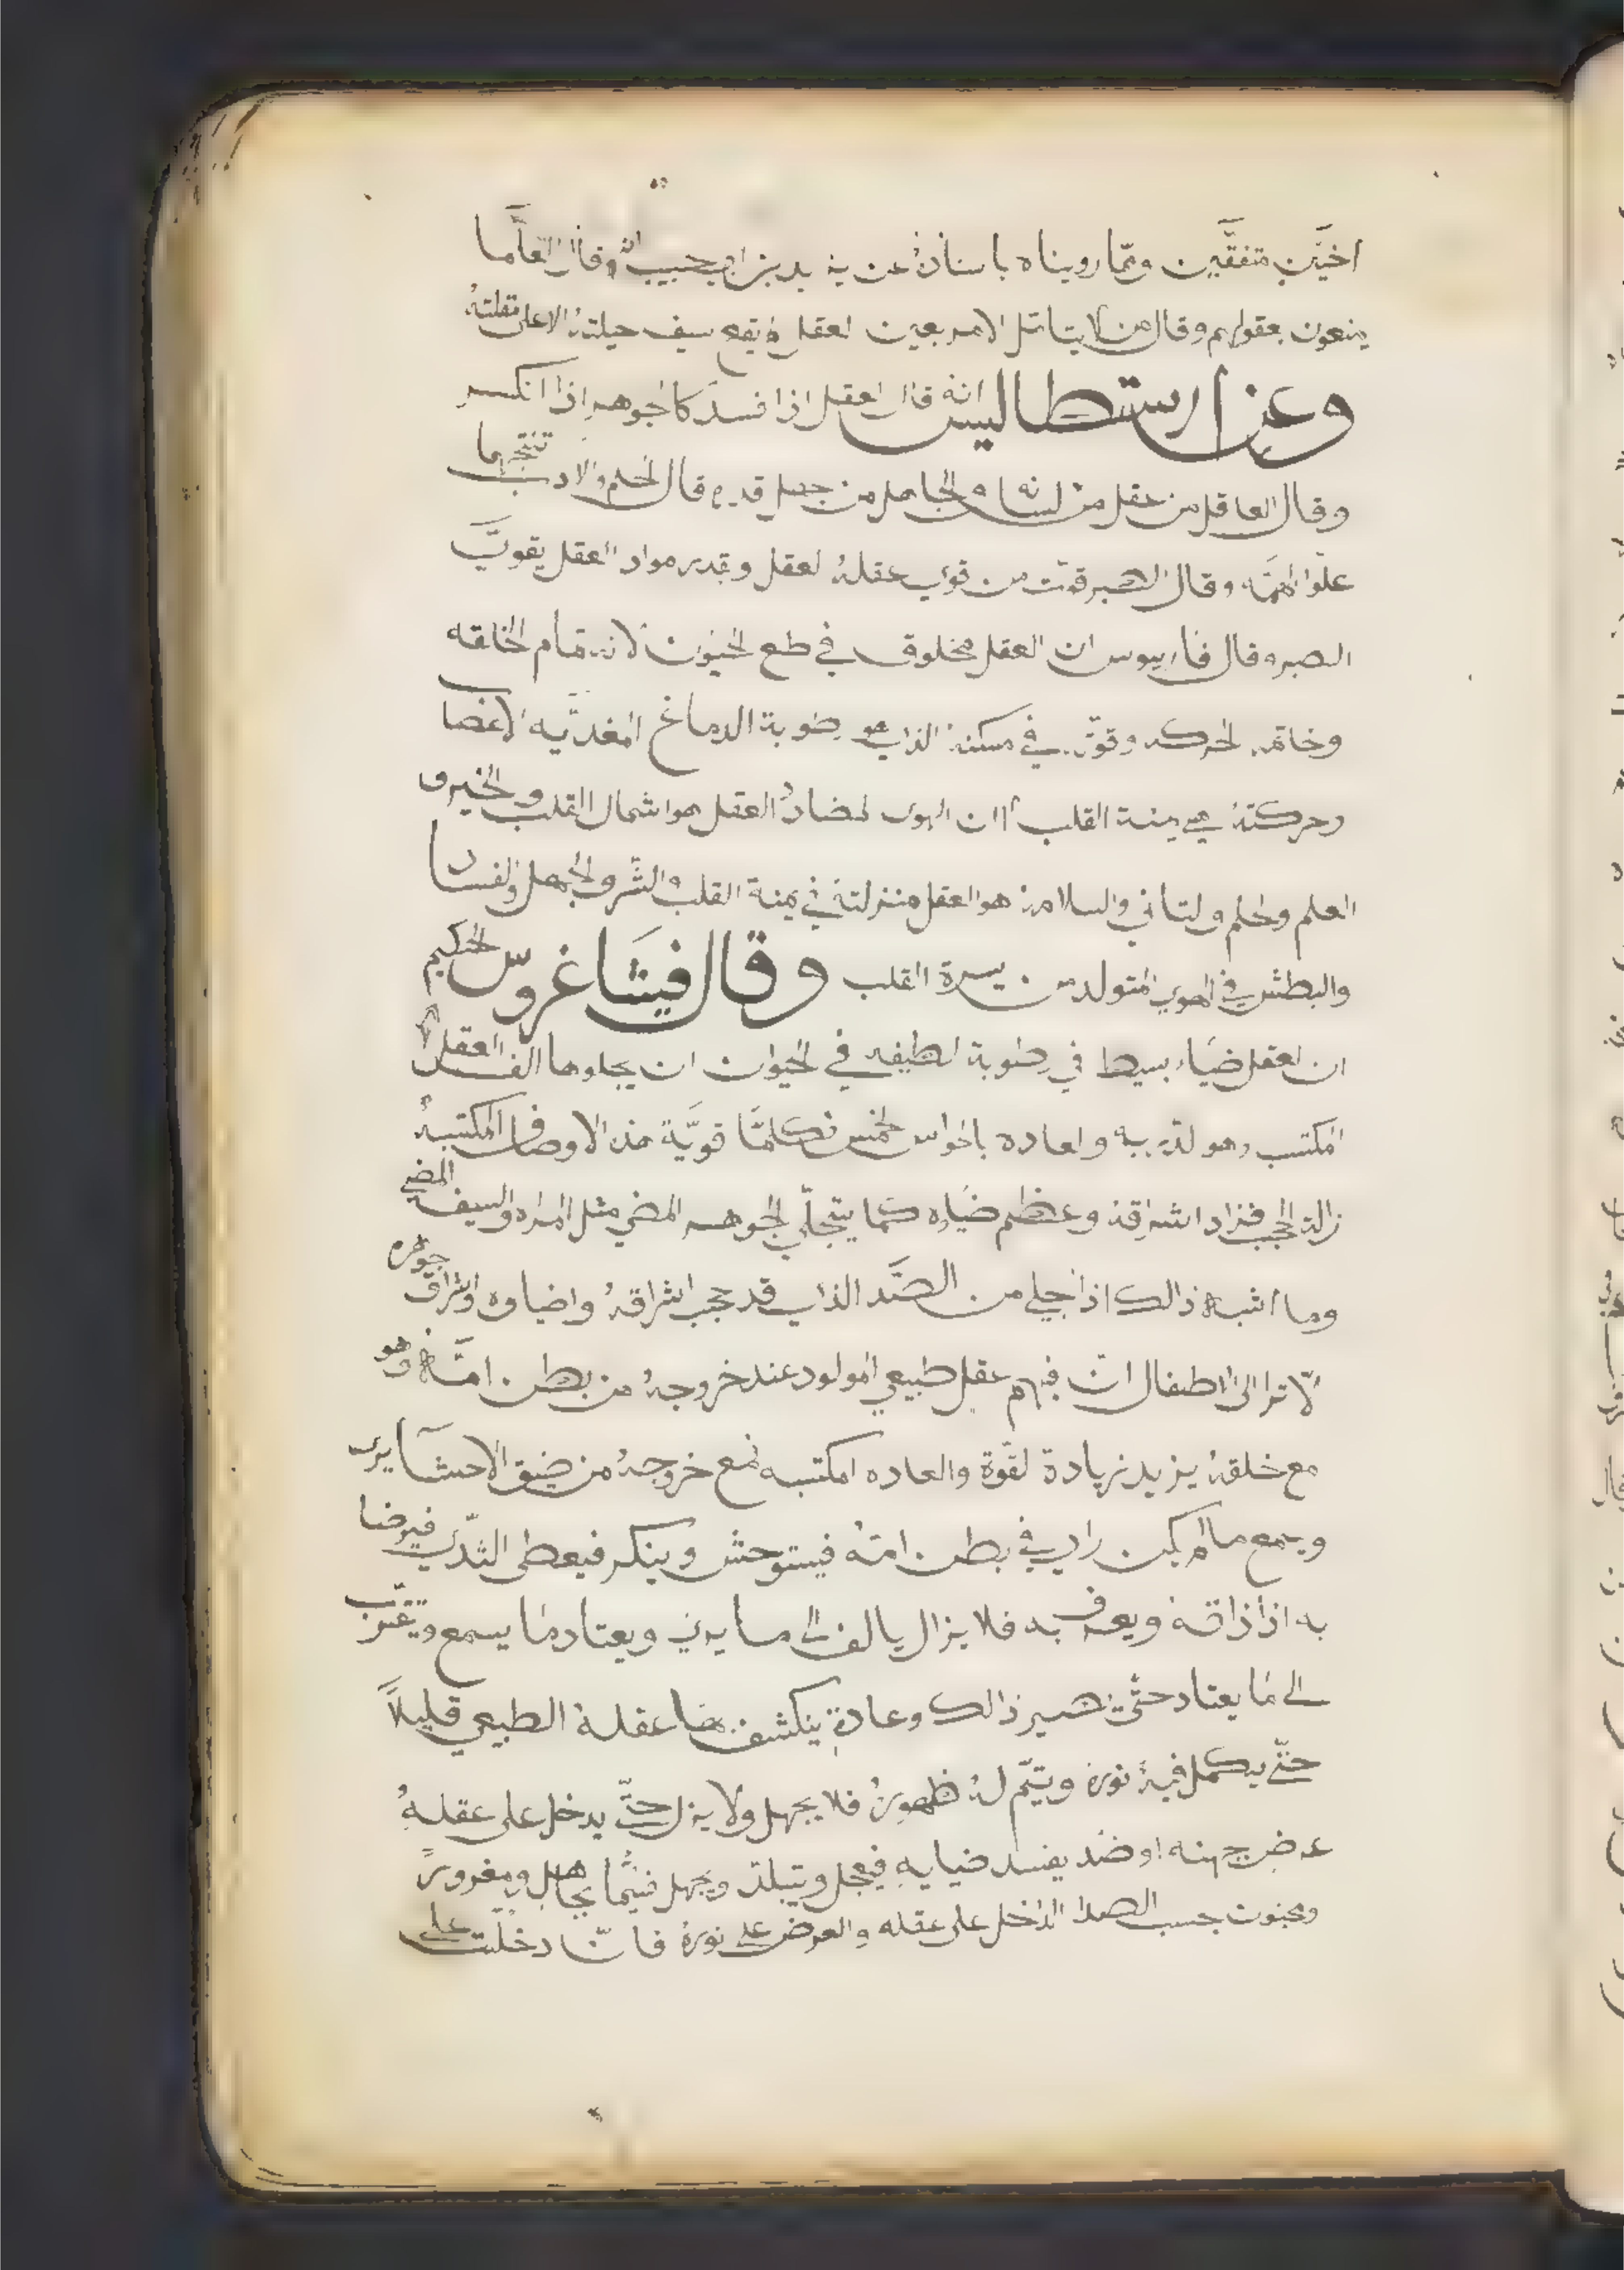 اخيّن متفقّين وممّا رويناه باسناده عن يزيد بن ابي حبيب انّه قال العلّما
ينعون بعقولهم وقال من لا يتامّل الامر بعين العقل لم يقع سيف حيلته الا على مقلته
وعن ارستطاليس انه قال العقل اذا فسد كالجوهر اذا انكسر
وقال العاقل من عقل من لسانه والجاهل من جهل قدره قال الحلم والادب تنتجهما
علوا الهمّه وقال الصبر قوّت من قوي عقله لعقل وبقدر مواد العقل يقويّ
الصبر وقال العقل مخلوق في طبع الحيوان لانه تمام الخلقه
وخاتمه الحركه وقوّته في مسكنه الذي هو رطوبة الدماغ المغدّيه الاعضا
وحركته هي يمنة القلب ان الهوى لمضادد العقل هوا شمال القلب والخير في
العلم والحلم والتاني والسلامه هو العقل منزلته في يمنة القلب والشّر والجهل والفساد
والبطش في الهوي المتولد من يسرة القلب وقال فيثاغروس الحكيم
ان العقل ضياء بسيط في رطوبة لطيفه في الحيوان ان يجلوها الف العقل
المكتسب وهو لدربه والعاده بالحواس الخمس فكلمّا قويّة هذه الاوصاف المكتسبه
زالة الحجب فزاد اشراقه وعظم ضياه كما يتجلّي الجوهر المضي مثل المراه والسيف المضي
وما اشبه ذالك اذا جلي من الصّد الذي قد حجب اشراقه واضاوه واشراق جوهره
الّا ترا الى الاطفال انّ فيهم عقل طبيعي المولود عند خروجه من بطن امّه وهو
مع خلقه يزيد زيادة القوّة والعاده المكتسبه فمع خروجه من ضيق الاحشآ يرى
ويسمع ما لم يكن راي في بطن امّه فيستوحش وينكر فيعطى الثدّي فيرضا
به اذا ذاقه ويعرف به فلا يزال يالف الى ما يرى ويعتاد ما يسمع ويتقرّب
الى ما يعتاد حتّى تصير ذالك وعادة ينكشف بها عقله الطبيعي قليلاً
حتّي يكمل فيه نوره ويتمّ له ظهوره فلا يجهل ولا يزل حتّى يدخل على عقله
عرض جهنه او ضد يفسد ضيايه فيعجل ويتبلد ويجهل فيثما بجاهل ومغرور
ومجنون بحسب الصدا الداخل على عقله والعرض على نوره فانّ دخلت على